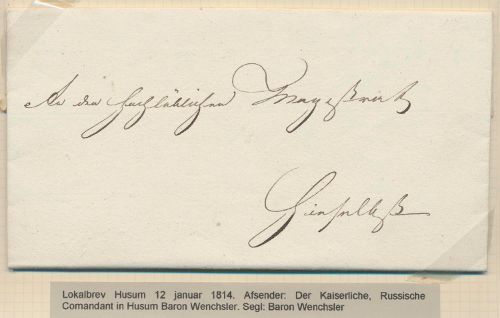 An den hochlöblichen Magistrat
Hieselbst
Lokalbrev Husum 12 januar 1814. Afsender: Der Kaiserliche, Russische
Comandant in Husum Baron Wenchsler. Segl: Baron Wenchsler